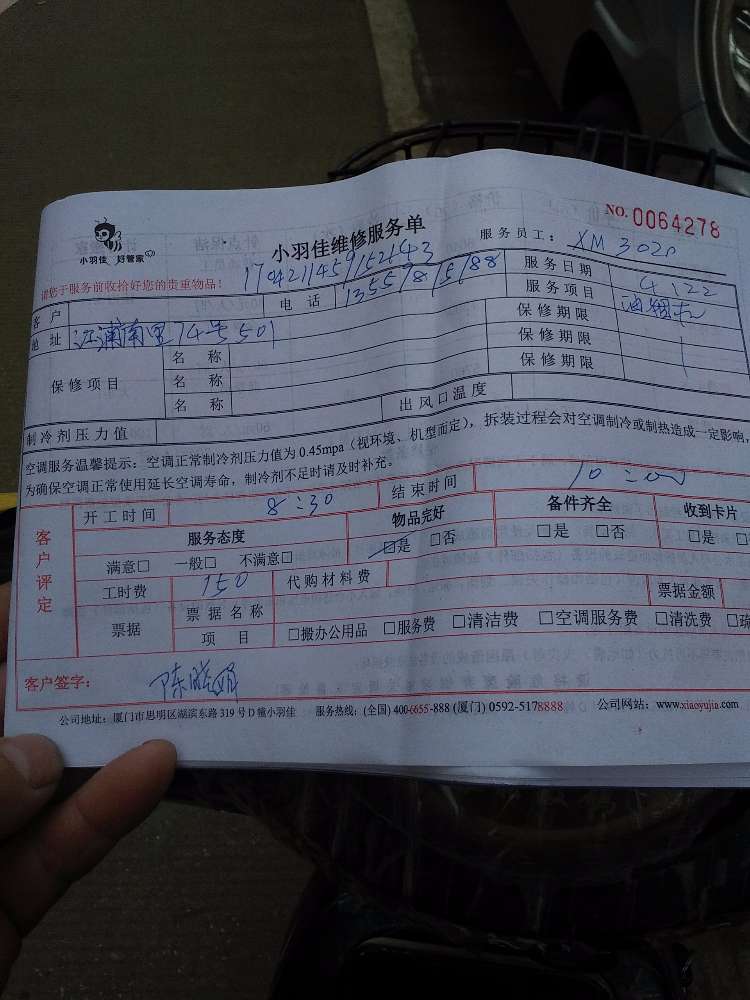 NO. 0064278
小羽佳 好管家
小羽佳维修服务单
服务员工: XM3020
请您于服务前收拾好您的贵重物品!
客户
电话 13557815188
服务日期 4.22
地址 江浦南里14号501
服务项目 油烟机
保修项目
名称
保修期限
名称
保修期限
名称
保修期限
制冷剂压力值
出风口温度
空调服务温馨提示: 空调正常制冷剂压力值为 0.45mpa (视环境、机型而定), 拆装过程会对空调制冷或制热造成一定影响,
为确保空调正常使用延长空调寿命, 制冷剂不足时请及时补充。
客户评定
开工时间 8:30
结束时间 10:00
服务态度
物品完好
备件齐全
收到卡片
满意□ 一般□ 不满意□
□是 □否
□是 □否
□是
工时费 150
代购材料费
票据
票据名称
票据金额
项目
□搬办公用品 □服务费 □清洁费 □空调服务费 □清洗费 □疏
客户签字:
公司地址: 厦门市思明区湖滨东路 319 号 D 幢小羽佳 服务热线: (全国) 400-6655-888 (厦门) 0592-5178888 公司网站: www.xiaoyujia.com